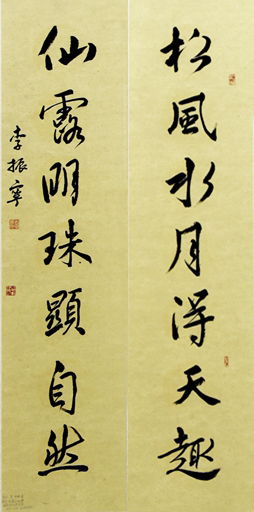 松風水月得天趣
仙露明珠顯自然
李振寧